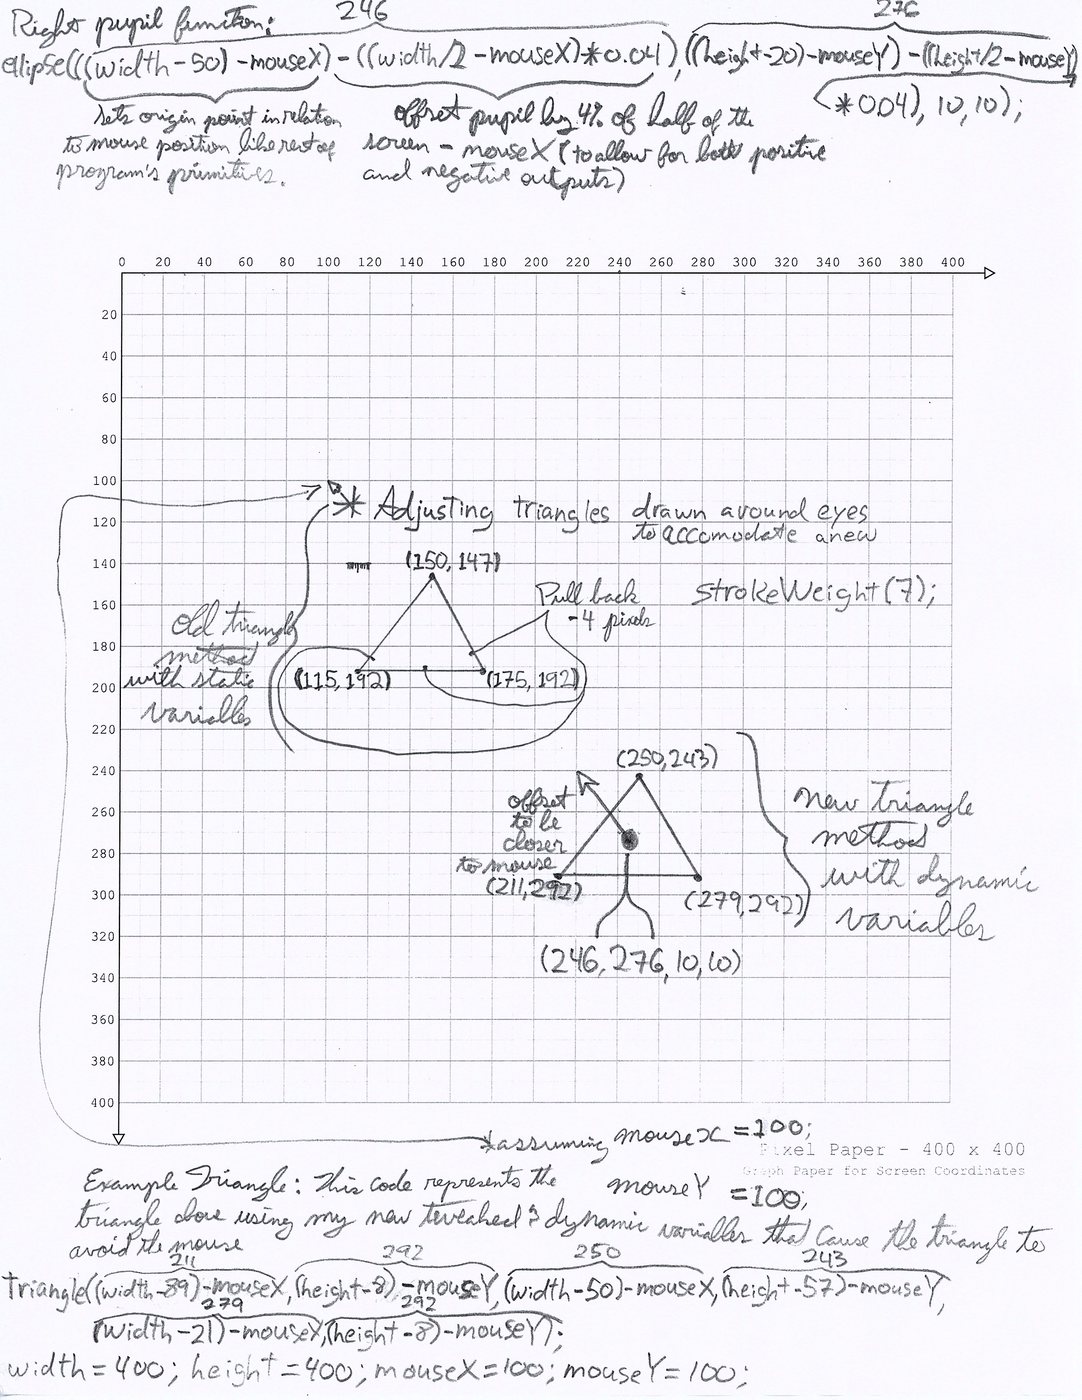 Right pupil function:
246
276
ellipse(((width-50)-mouseX)-((width/2-mouseX)*0.04),((height-20)-mouseY)-((height/2-mouseY)
*0.04), 10, 10);
sets origin point in relation
to mouse position like rest of
program's primitives.
offset pupil by 4% of half of the
screen - mouseX (to allow for both positive
and negative outputs)
0 20 40 60 80 100 120 140 160 180 200 220 240 260 280 300 320 340 360 380 400
20
40
60
80
100
120
140
160
180
200
220
240
260
280
300
320
340
360
380
400
* Adjusting triangles drawn around eyes
to accomodate a new
strokeWeight(7);
(150, 147)
Pull back
-4 pixels
old triangle
method
with static
variables
(115, 192)
(175, 192)
(250, 243)
offset
to be
closer
to mouse
(211, 292)
(279, 292)
new triangle
method
with dynamic
variables
(246, 276, 10, 10)
*assuming mouseX = 100;
mouseY = 100;
Pixel Paper - 400 x 400
Graph Paper for Screen Coordinates
Example Triangle: This code represents the
triangle above using my new tweaked & dynamic variables that cause the triangle to
avoid the mouse
211 292 250 243
triangle((width-89)-mouseX,(height-8)-mouseY,(width-50)-mouseX,(height-57)-mouseY,
279 292
(width-21)-mouseX,(height-8)-mouseY);
width=400; height=400; mouseX=100; mouseY=100;